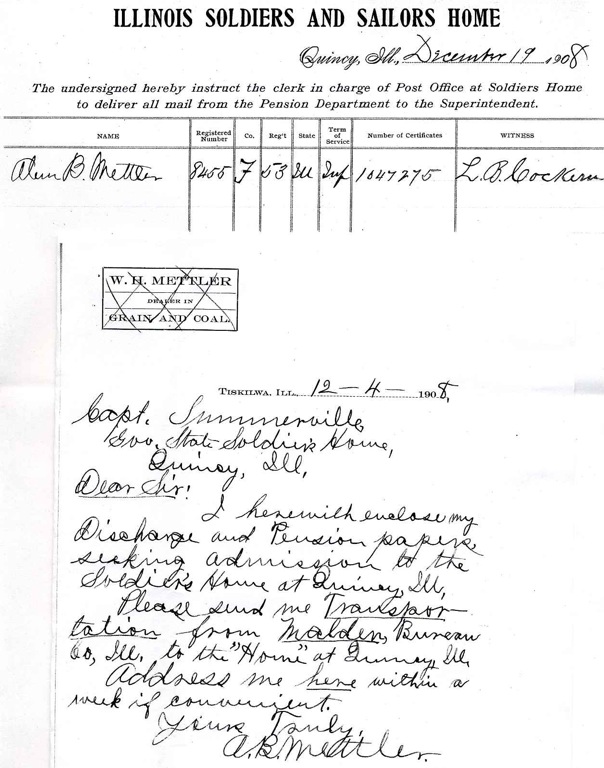 ILLINOIS SOLDIERS AND SAILORS HOME
Quincy, Ill., December 19 1908
The undersigned hereby instruct the clerk in charge of Post Office at Soldiers Home
to deliver all mail from the Pension Department to the Superintendent.
NAME Registered Number Co. Reg't State Term of Service Number of Certificates WITNESS
B. Mettler 8455 F 53 Ill Inf 1047275 L. B. Cockern
W. H. METTLER
DEALER IN
GRAIN AND COAL.
TISKILWA, ILL., 12 - 4 - 1908,
Capt. Summerville
Gov. State Soldier's Home,
Quincy, Ill,
Dear Sir!
I herewith enclose my
Discharge and Pension papers,
seeking admission to the
Soldier's Home at Quincy, Ill,
Please send me Transpor-
tation from Malden, Bureau
Co, Ill. to the "Home" at Quincy, Ill.
Address me here within a
week if convenient.
Yours Truly,
A. B. Mettler.